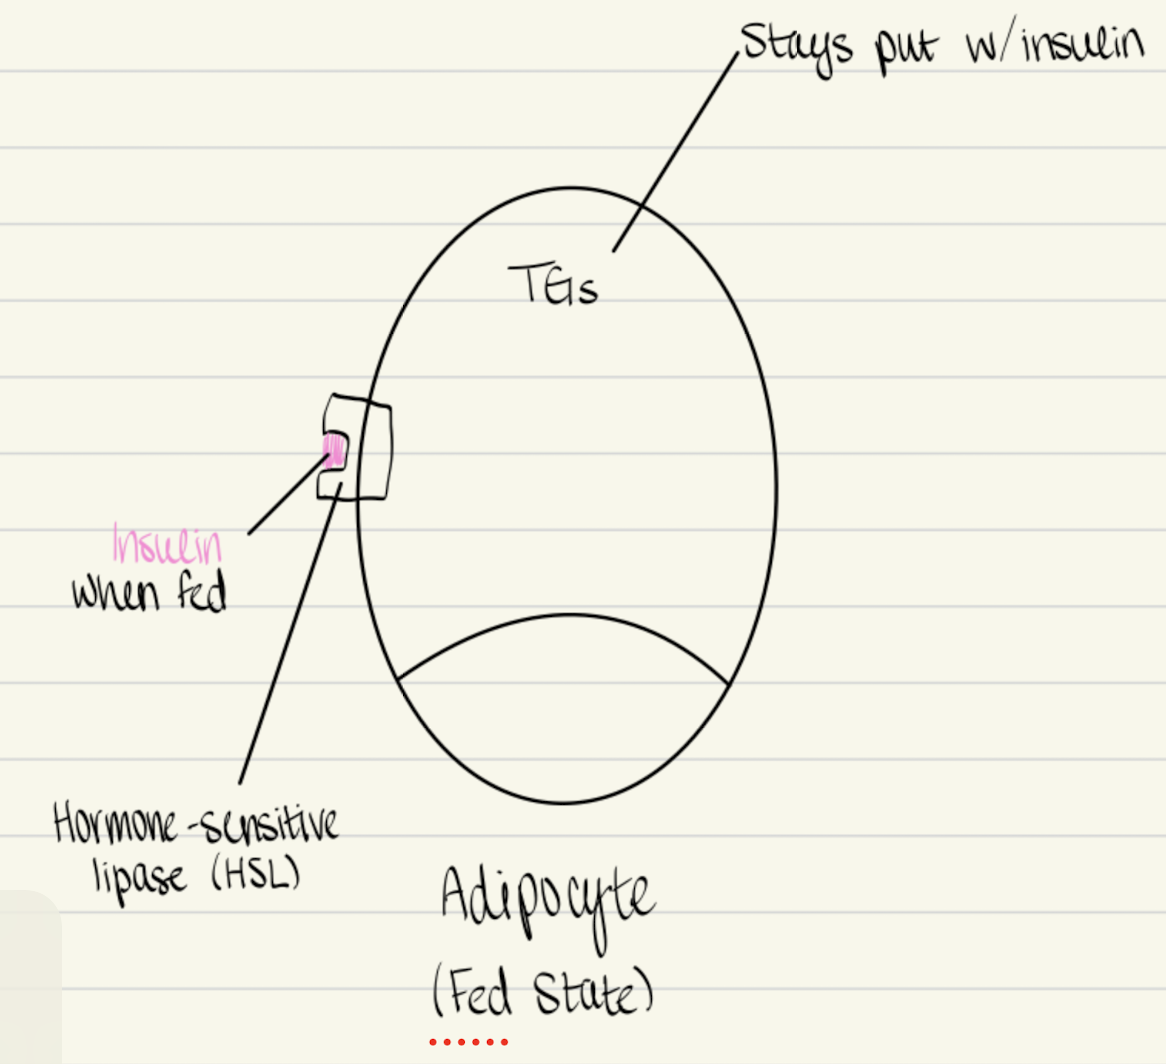 Stays put w/insulin
TGs
Insulin
when fed
Hormone-sensitive
lipase (HSL)
Adipocyte
(Fed State)